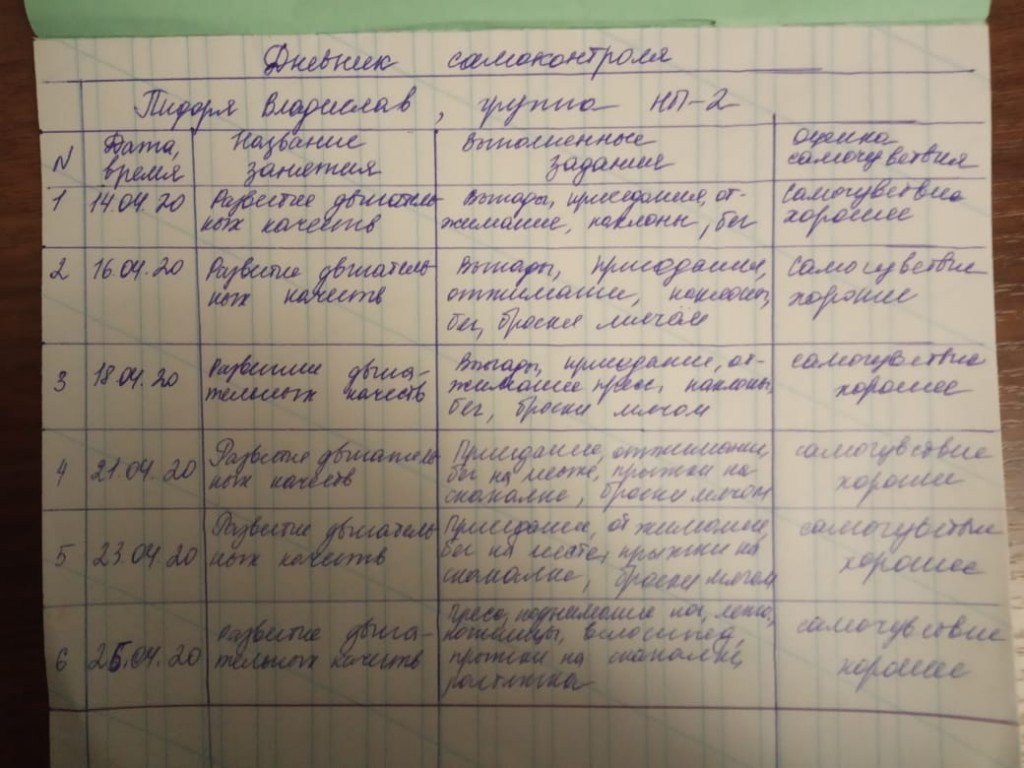 Дневник самоконтроля
Пидоря Владислав, группа НП-2
N
Дата,
время
Название
занятия
Выполненные
задание
оценка
самочувствия
1
14.04.20
Развитие двигатель
ных качеств
Выпады, приседания, от-
жимание, наклоны, бег
Самочувствие
хорошее
2
16.04.20
Развитие двигатель
ных качеств
Выпады, приседания,
отжимание, наклоны,
бег, броски мячом
самочувствие
хорошие
3
18.04.20
Развитие двига-
тельных качеств
Выпады, приседание, от-
жимание, пресс, наклоны,
бег, броски мячом
самочувствие
хорошее
4
21.04.20
Развитие двигатель
ных качеств
Приседание, отжимание,
бег на месте, прыжки на
скакалке, броски мячом
самочувствие
хорошие
5
23.04.20
Развитие двигатель
ных качеств
Приседание, отжимание,
бег на месте, прыжки на
скакалке, броски мячом
самочувствие
хорошее
6
25.04.20
Развитие двига-
тельных качеств
Пресс, поднимание ног,
ножницы, велосипед,
прыжки на скакалке,
растяжка
самочувствие
хорошее